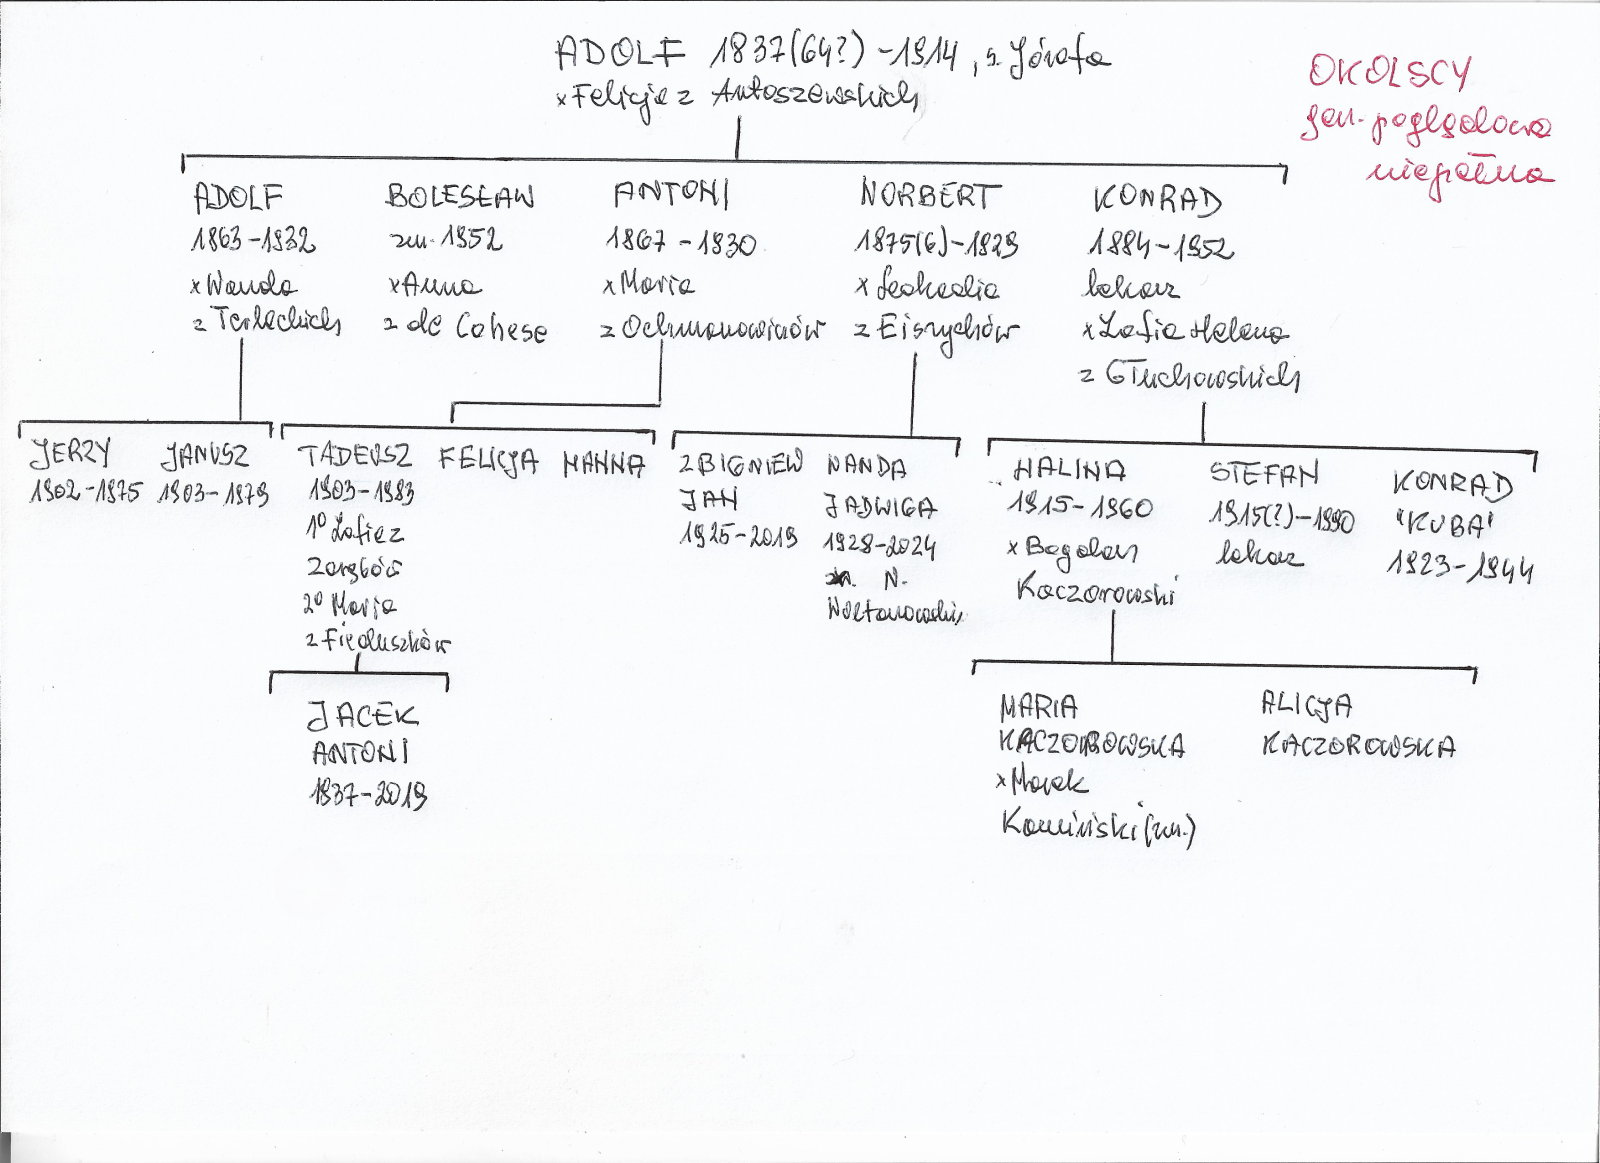 ADOLF 1837(64?) - 1914, s. Józefa
x Felicja z Antoszewskich
OKOLSCY
gen. poglądowa
niepełna
ADOLF
1863-1932
x Wanda
z Terleckich
BOLESŁAW
zm. 1952
x Anna
z de Cahese
ANTONI
1867-1930
x Maria
z Ochmanowiczów
NORBERT
1875(6)-1929
x Leokadia
z Eisrychów
KONRAD
1884-1952
lekarz
x Zofia Helena
z Głuchowskich
JERZY
1902-1975
JANUSZ
1903-1979
TADEUSZ
1903-1983
1º Zofia z
Zarębów
2º Maria
z Fieduszków
FELICJA
HANNA
ZBIGNIEW
JAN
1925-2019
WANDA
JADWIGA
1928-2024
N.
HALINA
1915-1960
x Bogdan
Kaczorowski
STEFAN
1915(?)-1990
lekarz
KONRAD
"KUBA"
1923-1944
JACEK
ANTONI
1937-2019
MARIA
KACZOROWSKA
x Marek
Kamiński (zm.)
ALICJA
KACZOROWSKA